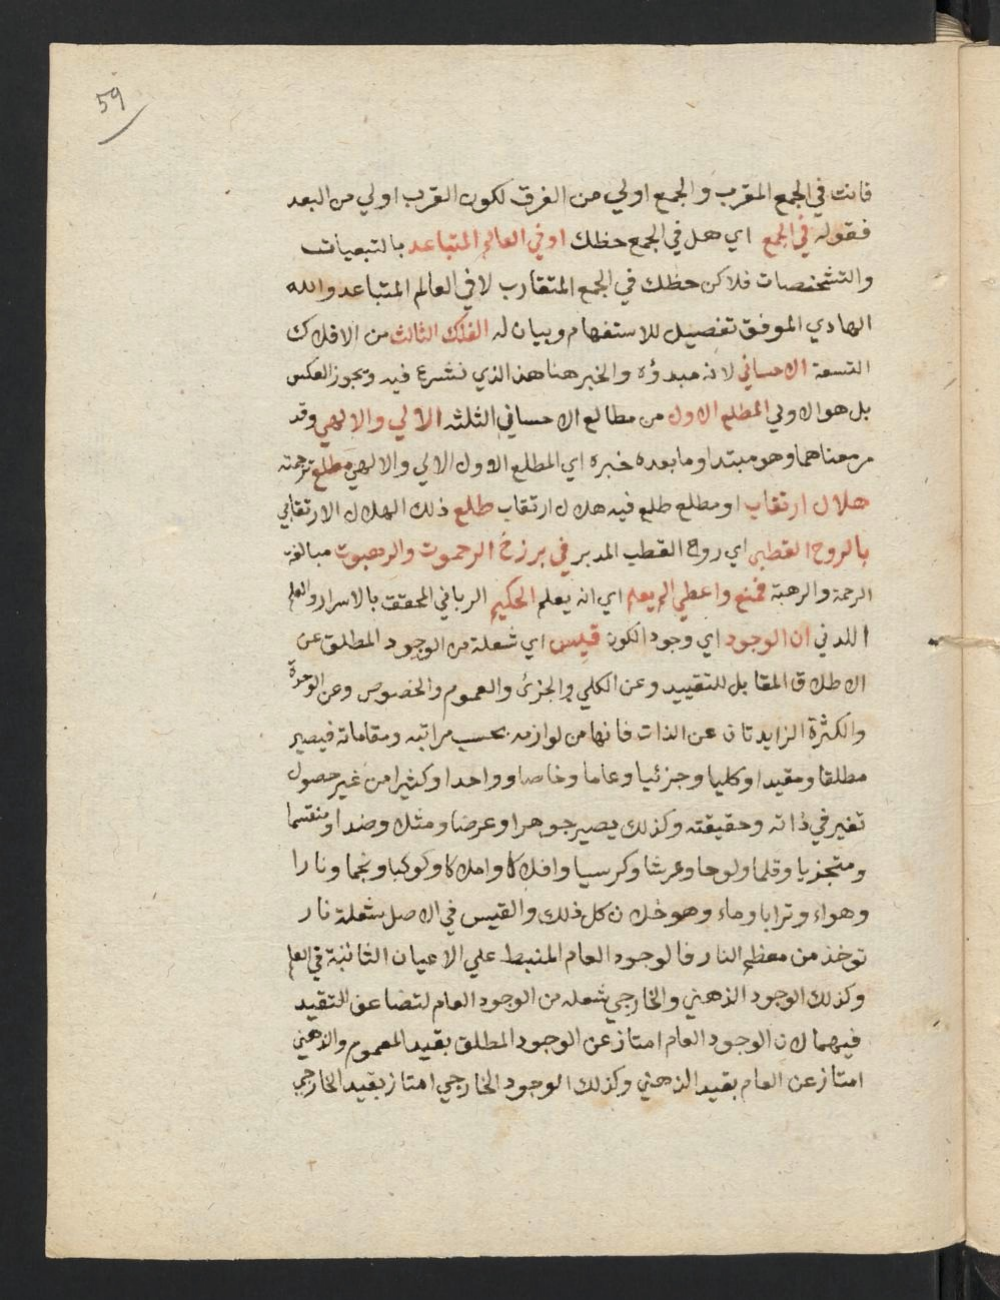 59
فانت في الجمع المقرب والجمع اولي من الفرق لكون القرب اولي من البعد
فقوله في الجمع اي هل في الجمع حظك او في العالم المتباعد بالتبعيات
والتشخصات فلا كن حظك في الجمع المتقارب لا في العالم المتباعد والله
الهادي الموفق تفصيل للاستفهام وبيان له الفلك الثالث من الافلاك
التسعة الاحساني لانه مبدؤه والخبر هنا هذ الذي نشرع فيه ويجوز العكس
بل هو الاولي المطلع الاول من مطالع الاحساني الثلثه الالي والالهي وقد
مر معناهما وهو مبتدا وما بعده خبره اي المطلع الاول الالي والالهي مطلع ترجمته
هلال ارتقاب او مطلع طلع فيه هلال ارتقاب طلع ذلك الهلال الارتقابي
بالروح القطبي اي روح القطب المدبر في برزخ الرحموت والرهبوت مبالغة
الرحمة والرهبة فمنع واعطي الم يعلم اي انه يعلم الحكيم الرباني المحقق بالاسرار والعلم
اللدني ان الوجود اي وجود الكون قيس اي شعلة من الوجود المطلق عن
الاطلاق المقابل للتقييد وعن الكلي والجزئ والعموم والخصوص وعن الوحدة
والكثرة الزايدتان عن الذات فانها من لوازمه بحسب مراتبه ومقاماته فيصير
مطلقا ومقيدا وكليا وجزئيا وعاما وخاصا وواحدا وكثيرا من غير حصول
تغير في ذاته وحقيقته وكذلك يصير جوهرا وعرضا ومثلا وضدا ومنقسما
ومتجزيا وقلما ولوحا وعرشا وكرسيا وافلاكا واملاكا وكوكبا ونجما ونارا
وهواء وترابا وماء وهو خلان كل ذلك والقيس في الاصل شعلة نار
توخذ من معظم النار فالوجود العام المنبط علي الاعيان الثانية في العلم
وكذلك الوجود الذهني والخارجي شعله من الوجود العام لتضاعف التقيد
فيهما لان الوجود العام امتاز عن الوجود المطلق بقيد المعموم والذهني
امتاز عن العام بقيد الذهني وكذلك الوجود الخارجي امتاز بقيد الخارجي